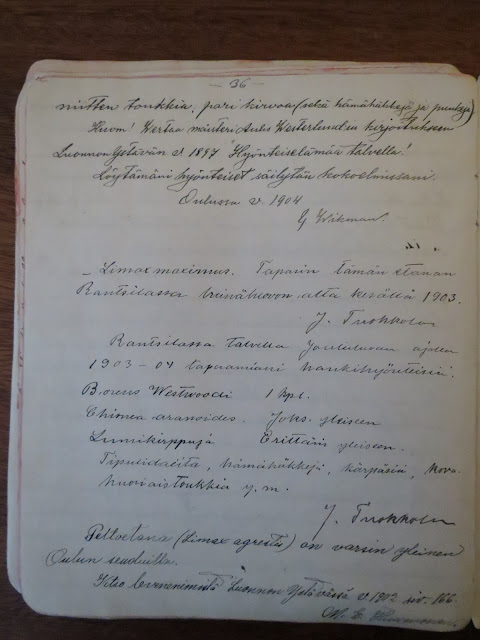 — 36 —
mitten toukkia, pari kirvaa (sekä hämähäkkejä ja punkeja)
Huom! Vertaa maisteri Aulis Westerlundin kirjoitukseen
Luonnon Ystävän v 1897 "Hyönteiselämää talvella".
Löytämäni hyönteiset säilytän kokoelmissani.
Oulussa v. 1904
Y Wikman.
— Limax maximus. Tapasin tämän etanan
Rantsilassa heinäluovon alta kevällä 1903.
J. Tuokkola
Rantsilassa talvella Joululuvan ajalla
1903–04 tapaamiani hankihyönteisiä.
Boreus Westwoodi 1 kpl.
Chionea aranoides. Joks. yleiseen
Lumikirppuja Erittäin yleiseen.
Tipulidaeita, hämähäkkejä, kärpäsiä, kova-
kuoriaistoukkia y. m.
J. Tuokkola
Peltoetana (Limax agrestis) on varsin yleinen
Oulun seuduilla.
Katso Luonnon Ystävässä v. 1902 siv. 166.